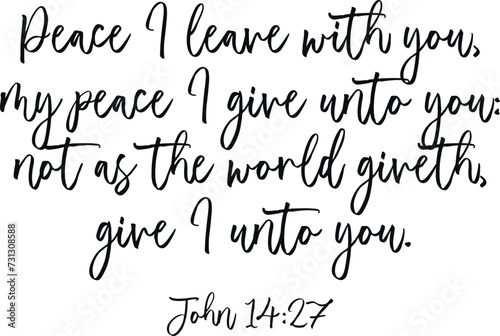 Peace I leave with you,
my peace I give unto you:
not as the world giveth,
give I unto you.
John 14:27
Adobe Stock | #731308588